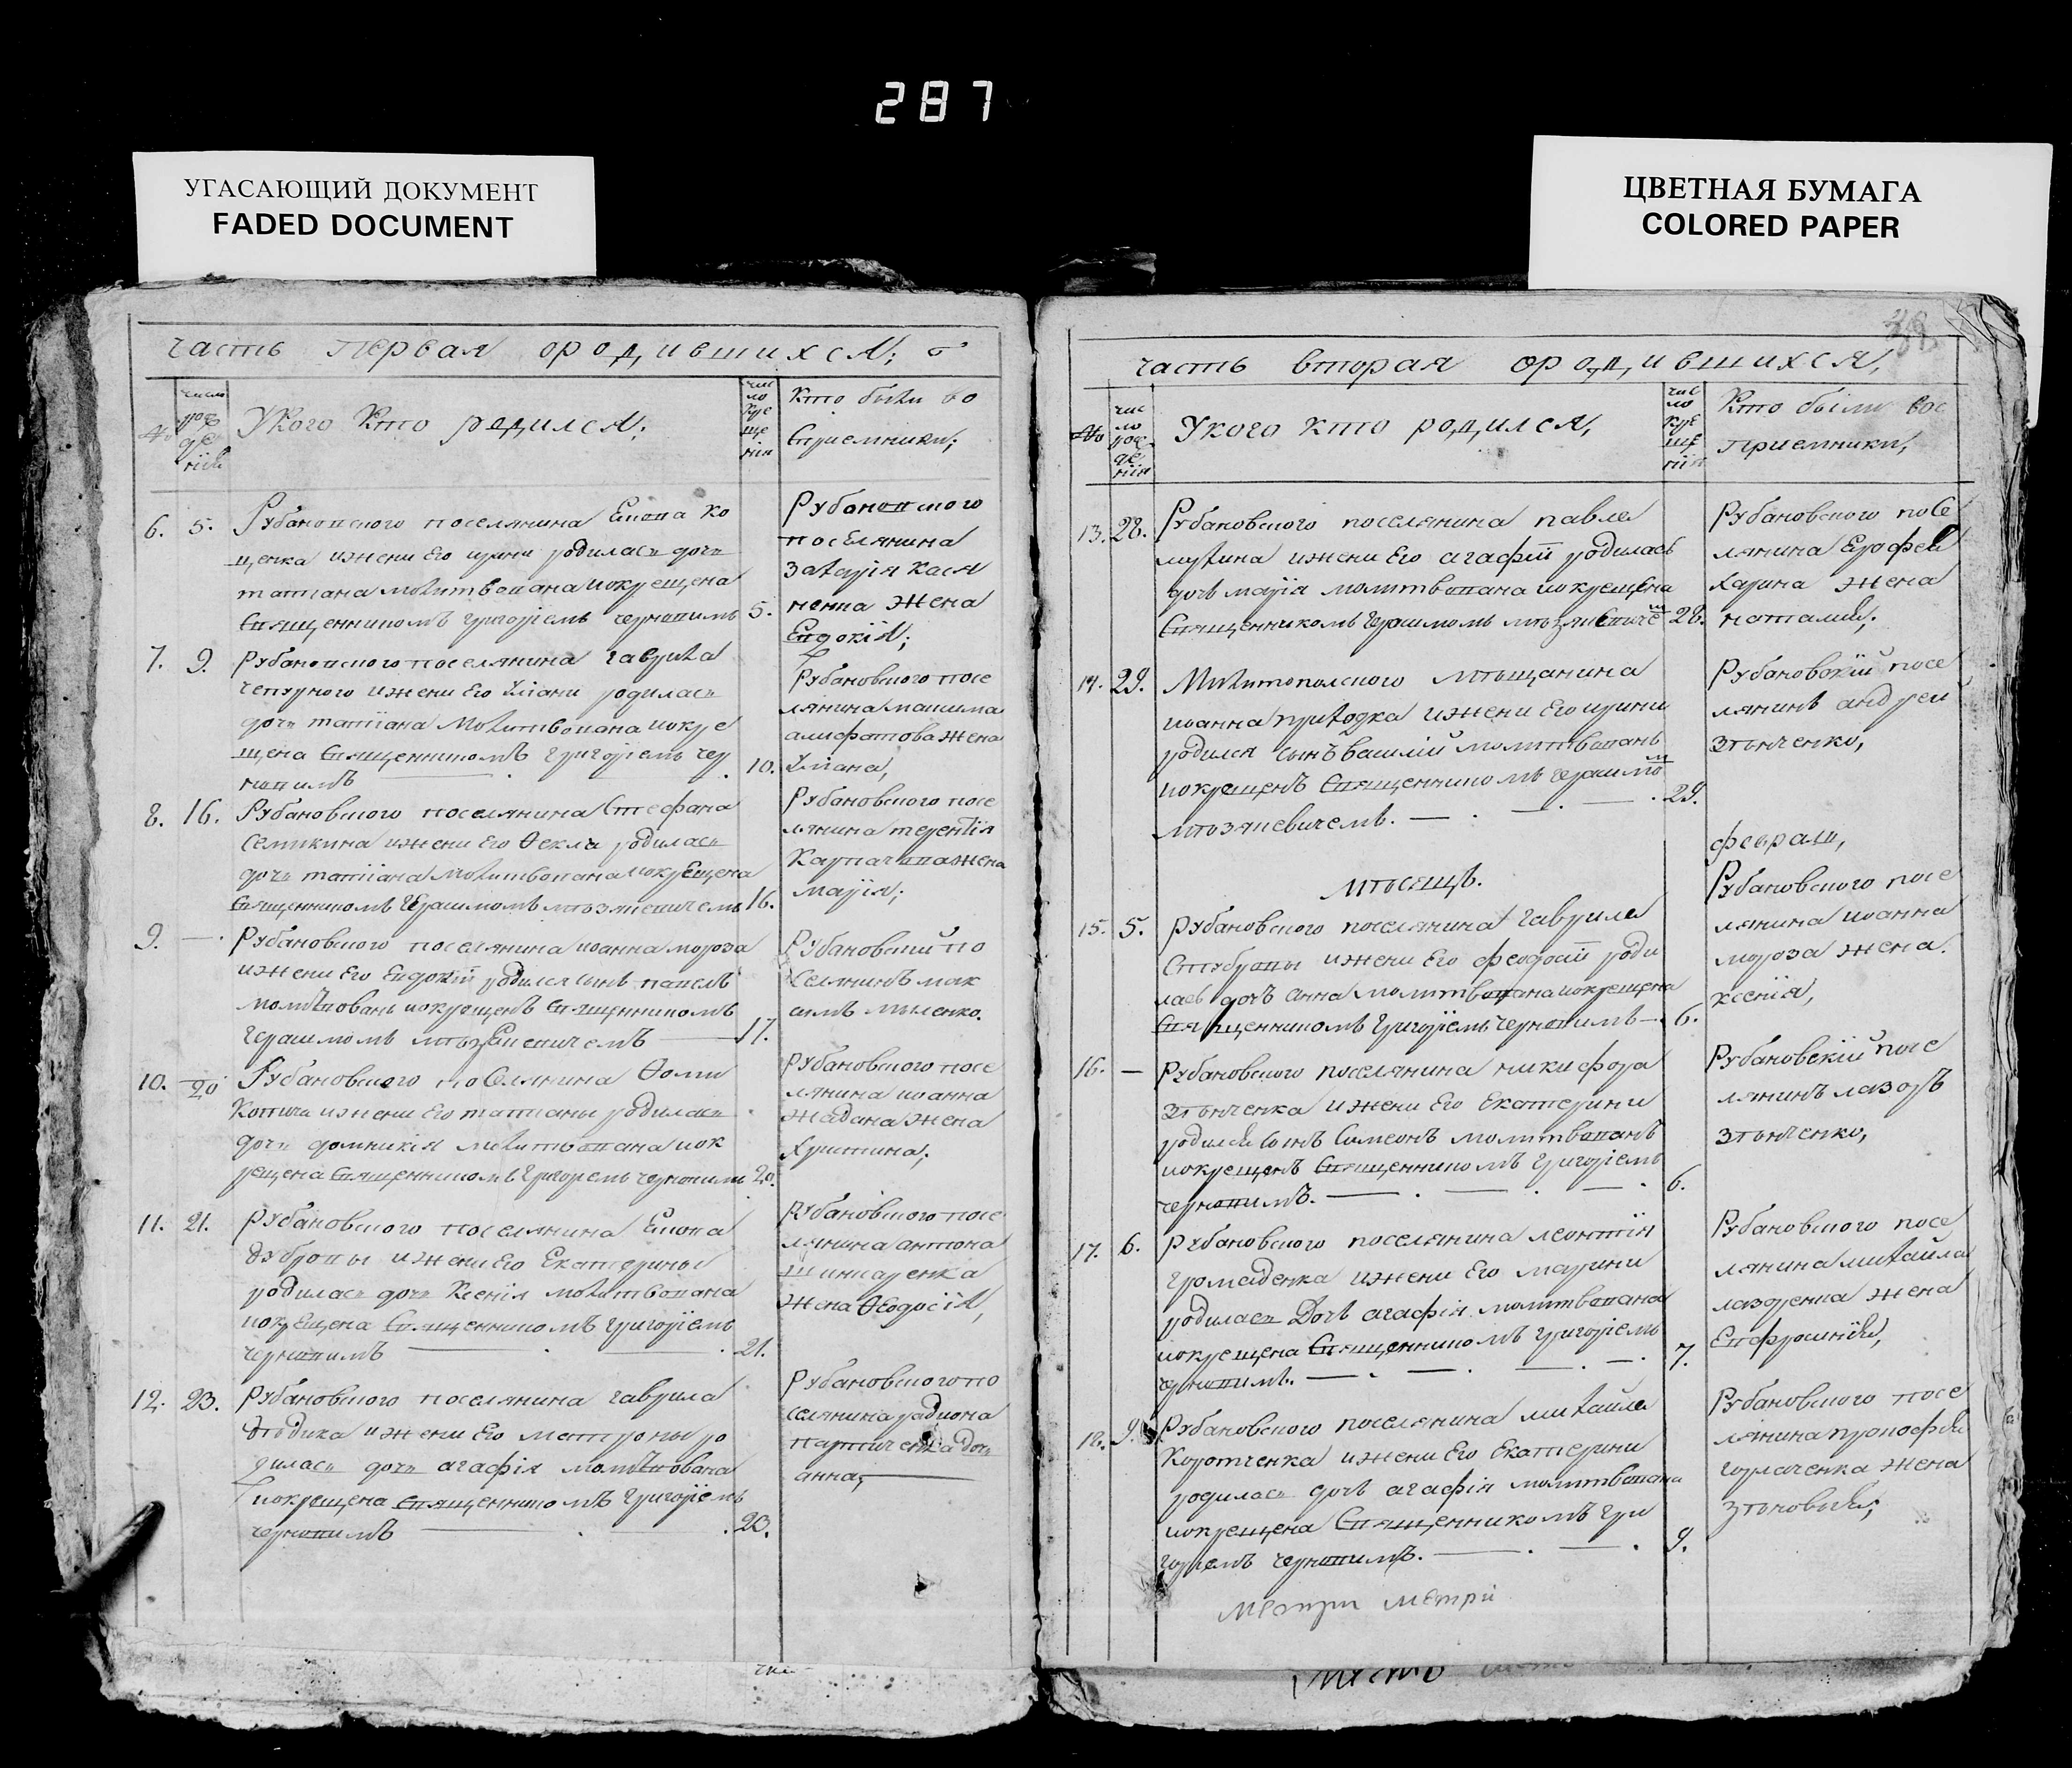 287
УГАСАЮЩИЙ ДОКУМЕНТ
FADED DOCUMENT
ЦВЕТНАЯ БУМАГА
COLORED PAPER
часть первая ородившихся;
№
число рождения
Укого кто родился;
число крещения
кто были во
сприемники;
6. 5. Рубановского поселянина Ко
щенка ижени Его ирини родилась дочь
татиана молитвована иокрещена
священникомъ григоріемъ чернопимъ 5.
Рубановского
поселянина
захарія кася
ненка жена
Евдокія;
7. 9. Рубановского поселянина гаврила
чепурного ижени Его Уліани родилась
дочь татіана молитвована иокре
щена священникомъ григоріемъ чер
нопимъ 10.
Рубановского посе
лянина максима
жена
Уліана,
8. 16. Рубановского поселянина Стефана
Семикина ижени Его Ѳекли родилась
дочь татіана молитвована иокрещена
священникомъ Герасимомъ мъзяпевичемъ 16.
Рубановского посе
лянина терентія
жена
марія;
9. — Рубановского поселянина иоанна мороза
ижени Его Евдокіи родился сынъ павелъ
молитвованъ иокрещенъ священникомъ
герасимомъ 17.
Рубановскій по
селянинъ мак
симъ
10. 20 Рубановского поселянина Ѳоми
ижени Его татианы родилась
дочь домникія молитвована иок
рещена священникомъ Григоремъ чернопимъ 20.
Рубановского посе
лянина иоанна
жадана жена
христина;
11. 21. Рубановского поселянина
дубровы ижени Его Екатерины
родилась дочь Ксенія молитвована
иокрещена священникомъ григоріемъ
чернопимъ 21.
Рубановского посе
лянина антона
шинкаренка
жена Ѳеодосія,
12. 23. Рубановского поселянина гаврила
дъдика ижени Его матроны ро
дилась дочь агафія молитвована
иокрещена священникомъ григоріемъ
чернопимъ 23.
Рубановского по
селянина радиона
дочь
анна;
часть вторая ородившихся,
№
число рождения
Укого кто родился,
число крещения
Кто были вос
приемники,
13. 28. Рубановского поселянина павла
ижени Его агафіи родилась
дочь марія молитвована иокрещена
священникомъ Герасимомъ 28.
Рубановского посе
лянина Ерофея
жена
наталия;
14. 29. Мелитополского мъщанина
иоанна приходка ижени Его ирини
родился сынъ василій молитвованъ
иокрещенъ священникомъ герасимо
мъзяпевичемъ. 29.
Рубановскій посе
лянинъ андреи
зънченко,
мъсець.
февраль,
15. 5. Рубановского поселянина гаврила
ижени Его феодосіи роди
лась дочь анна молитвована иокрещена
священникомъ григоріемъ чернопимъ 6.
Рубановского посе
лянина иоанна
мороза жена.
ксенія,
16. — Рубановского поселянина никифора
зънченка ижени Его Екатерини
родился сынъ Симеонъ молитвованъ
иокрещенъ священникомъ григоріемъ
чернопимъ. 6.
Рубановскій посе
лянинъ лазоръ
зънченко,
17. 6. Рубановского поселянина леонтія
громаденка ижени Его марини
родилась Дочь агафія молитвована
иокрещена священникомъ григоріемъ
чернопимъ. 7.
Рубановского посе
лянина михайла
лазоренка жена
Евфросинія,
18. 9. Рубановского поселянина михайла
Коротченка ижени Его Екатерини
родилась дочь агафія молитвована
иокрещена священникомъ гри
горіемъ чернопимъ. 9.
Рубановского посе
лянина прокофія
жена
зъновыя;